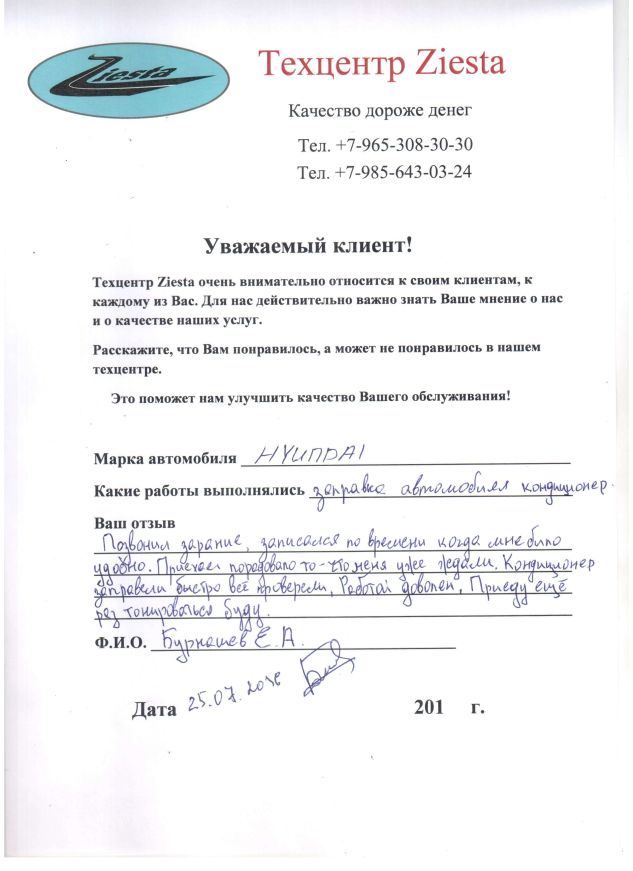 Ziesta
Техцентр Ziesta
Качество дороже денег
Тел. +7-965-308-30-30
Тел. +7-985-643-03-24
Уважаемый клиент!
Техцентр Ziesta очень внимательно относится к своим клиентам, к
каждому из Вас. Для нас действительно важно знать Ваше мнение о нас
и о качестве наших услуг.
Расскажите, что Вам понравилось, а может не понравилось в нашем
техцентре.
Это поможет нам улучшить качество Вашего обслуживания!
Марка автомобиля HYUNDAI
Какие работы выполнялись заправка автомобиля кондиционер.
Ваш отзыв
Позвонил зарание, записался по времени когда мне было
удобно. Приехал порадовало то-что меня уже ждали. Кондиционер
заправели быстро всё проверели, Работай доволен, Приеду ещё
рез тонироваться буду.
Ф.И.О. Бурнашев Е.А.
Дата 25.07. 201 г.